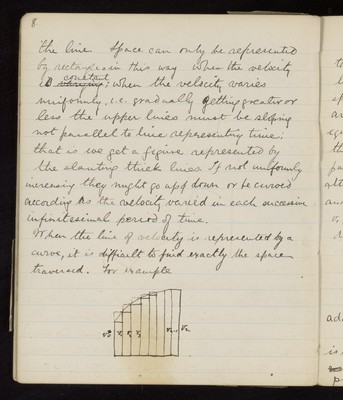 8
the line. Space can only be represented
by rectangles in this way when the velocity
is varying constant; when the velocity varies
uniformly, i.e. gradually getting greater or
less the upper lines must be sloping
not parallel to line representing time:
that is we get a figure represented by
the slanting thick lines. If not uniformly
increasing they might go up & down or be curved
according as the velocity varied in each successive
infinitesimal period of time.
When the line of velocity is represented by a
curve, it is difficult to find exactly the space
traversed. For example